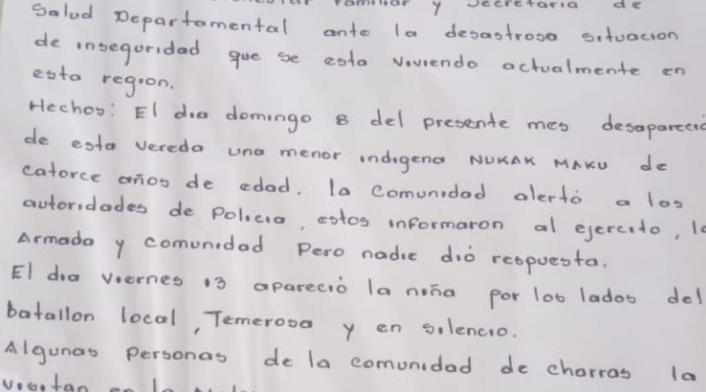 Familiar y Secretaria de
Salud Departamental ante la desastrosa situación
de inseguridad que se esta viviendo actualmente en
esta region.
Hechos: El dia domingo 8 del presente mes desapareció
de esta vereda una menor indigena NUKAK MAKU de
catorce años de edad. la comunidad alertó a los
autoridades de Policia, estos informaron al ejercito, la
Armada y comunidad Pero nadie dió respuesta.
El dia viernes 13 apareció la niña por los lados del
batallon local, Temerosa y en silencio.
Algunas personas de la comunidad de charras la
visitan en la